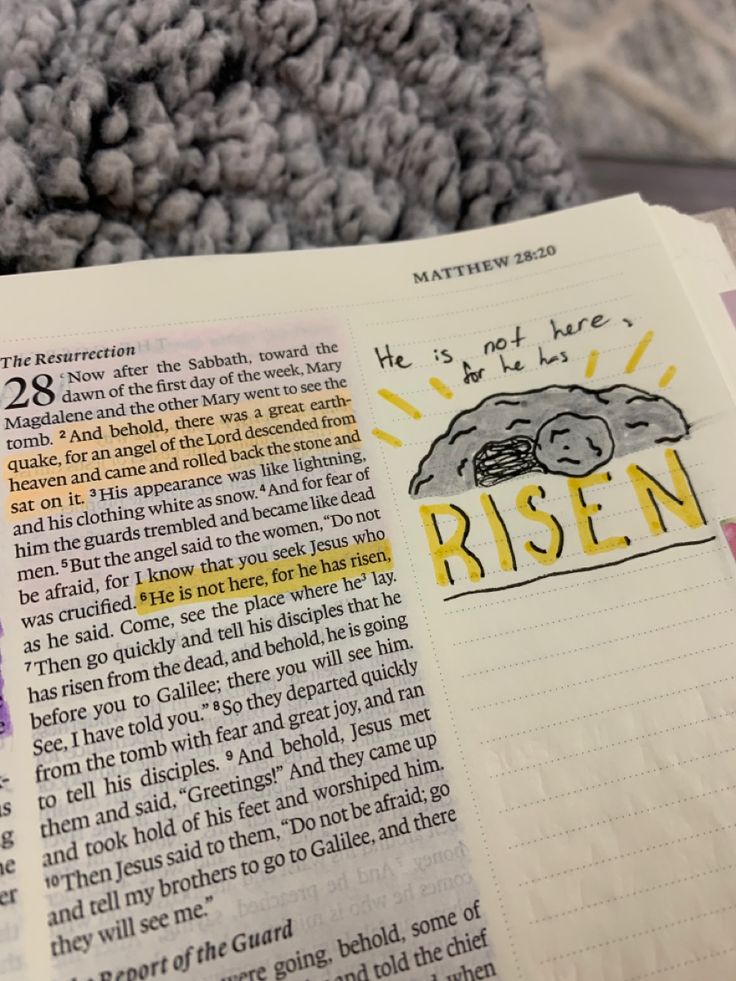 MATTHEW 28:20
The Resurrection
28 ‹Now after the Sabbath, toward the
dawn of the first day of the week, Mary
Magdalene and the other Mary went to see the
tomb. ²And behold, there was a great earth-
quake, for an angel of the Lord descended from
heaven and came and rolled back the stone and
sat on it. ³His appearance was like lightning,
and his clothing white as snow. ⁴And for fear of
him the guards trembled and became like dead
men. ⁵But the angel said to the women, “Do not
be afraid, for I know that you seek Jesus who
was crucified. ⁶He is not here, for he has risen,
as he said. Come, see the place where he³ lay.
⁷Then go quickly and tell his disciples that he
has risen from the dead, and behold, he is going
before you to Galilee; there you will see him.
See, I have told you.” ⁸So they departed quickly
from the tomb with fear and great joy, and ran
to tell his disciples. ⁹And behold, Jesus met
them and said, “Greetings!” And they came up
and took hold of his feet and worshiped him.
¹⁰Then Jesus said to them, “Do not be afraid; go
and tell my brothers to go to Galilee, and there
they will see me.”
Report of the Guard
were going, behold, some of
and told the chief
when
He is not here,
for he has
RISEN